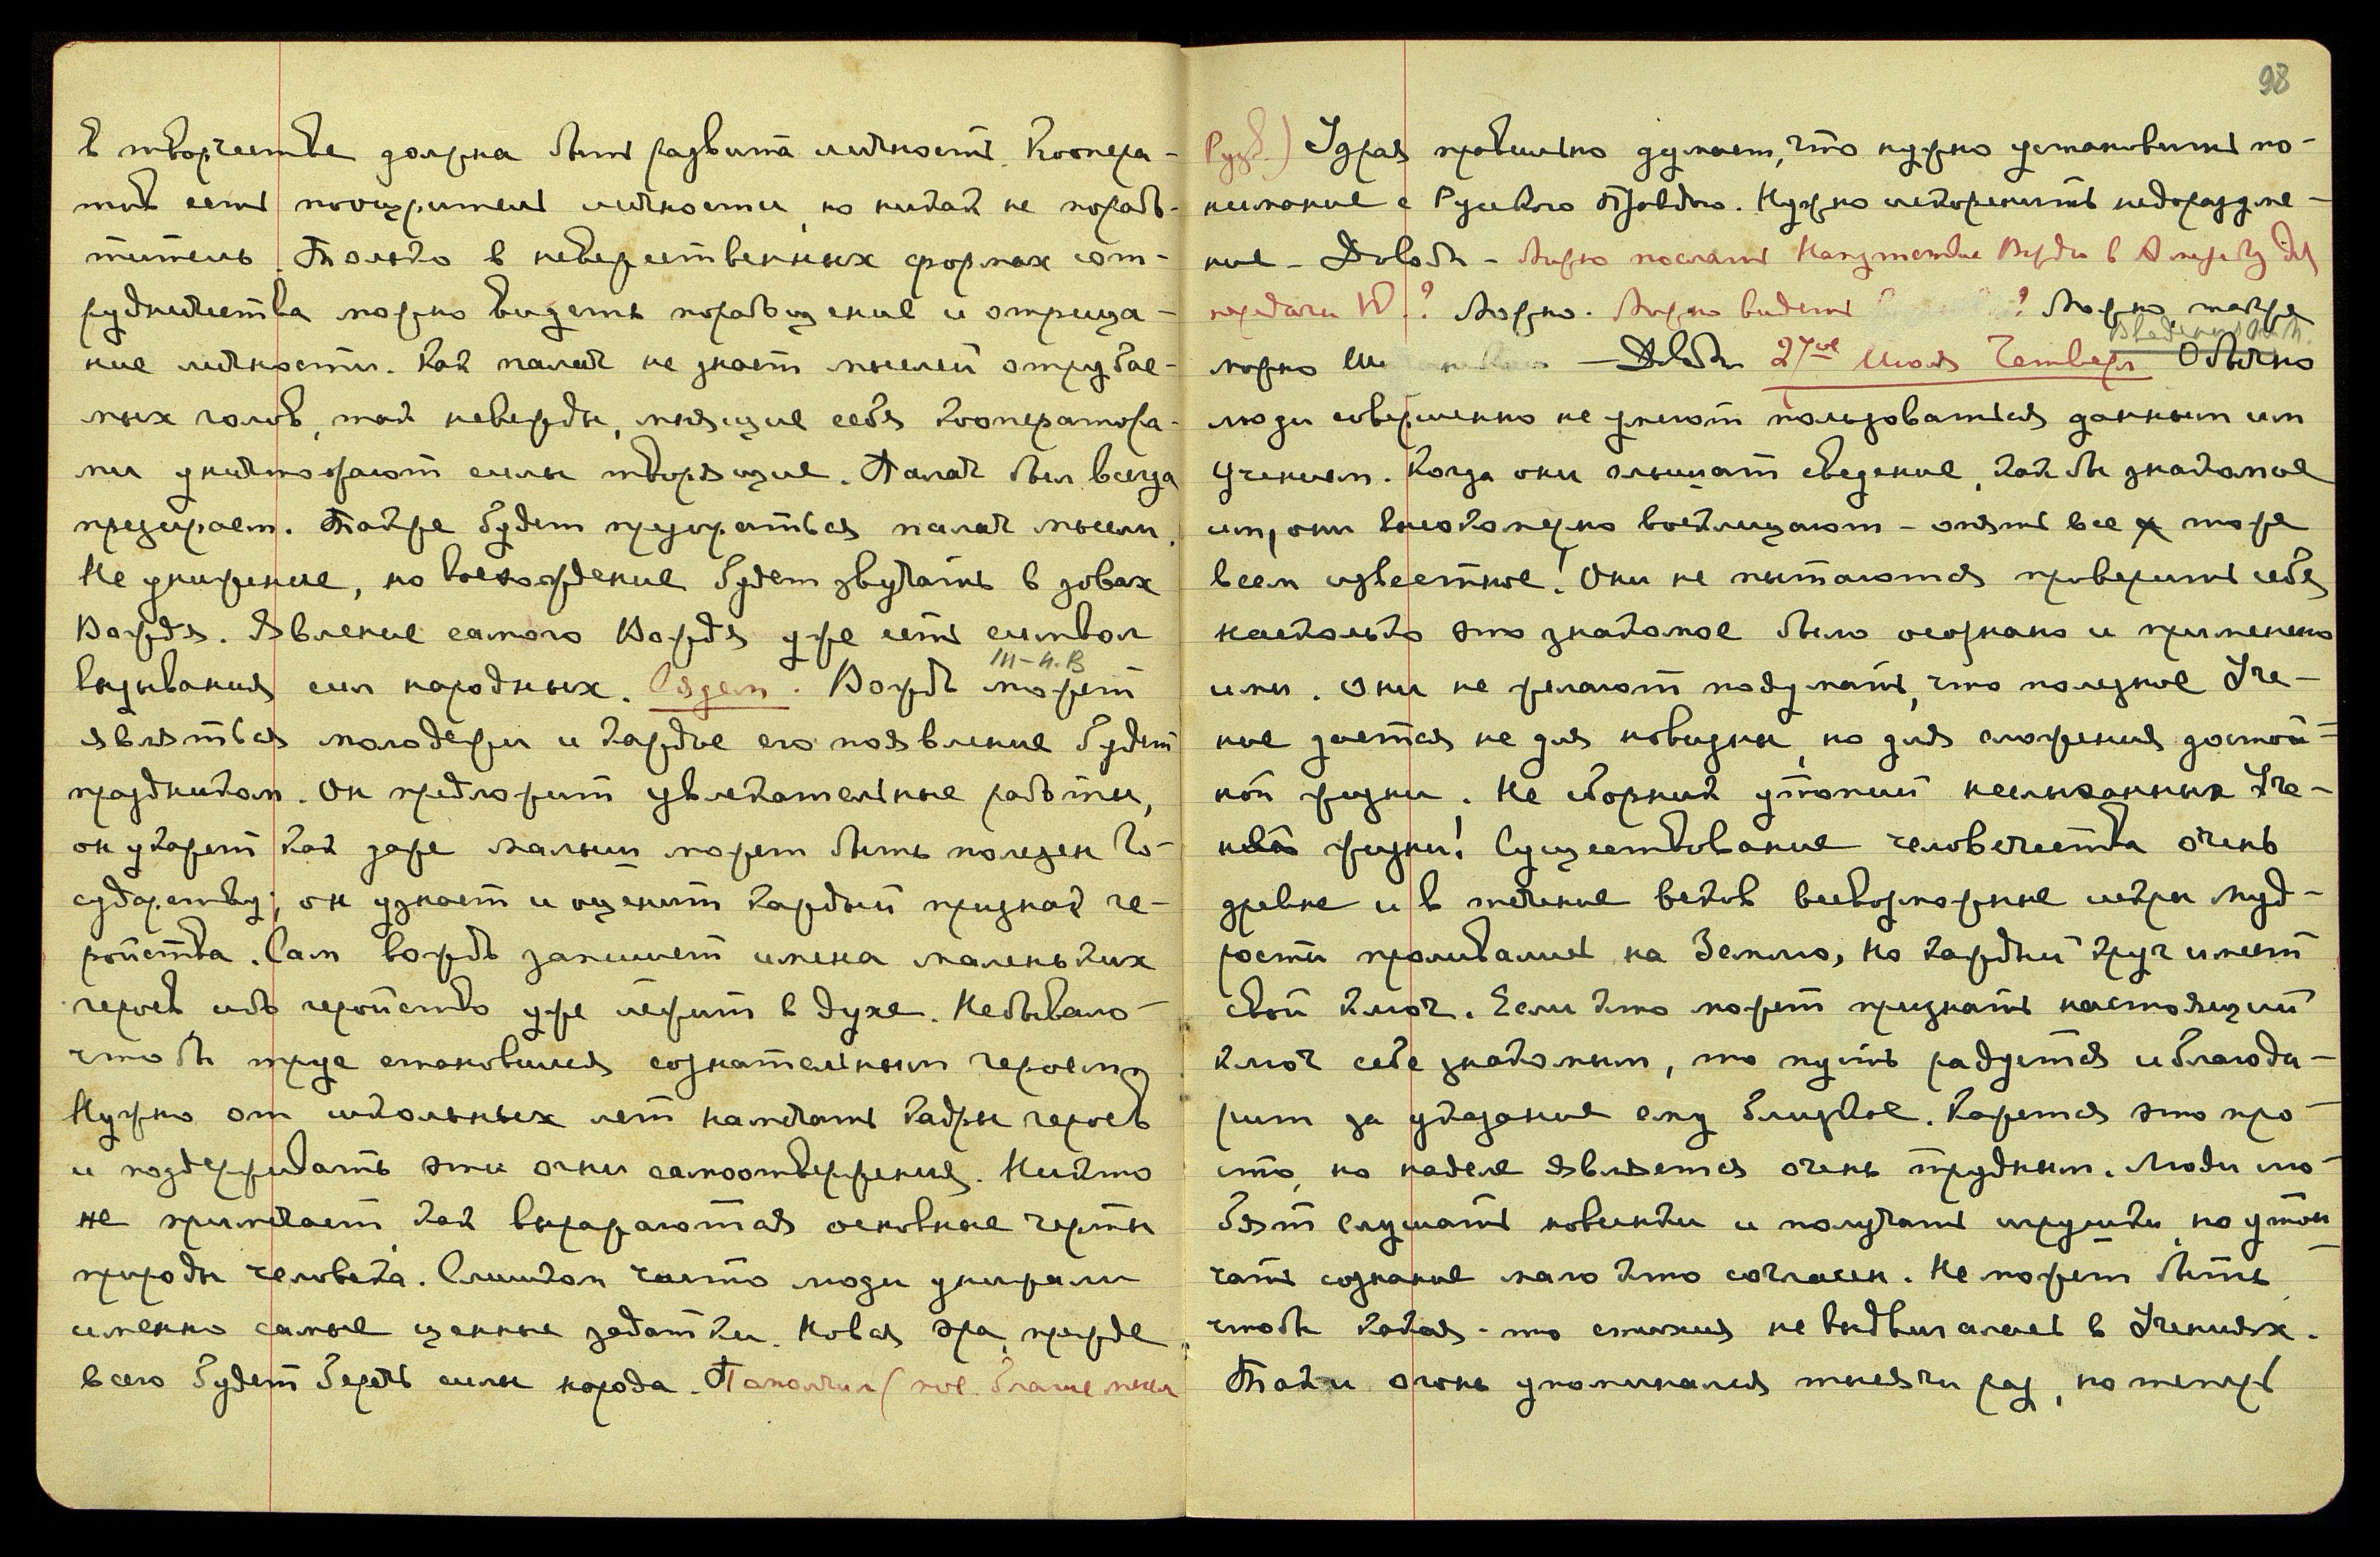 в творчестве должна быть развита личность. Коопера-
тив есть поощритель личности, но никак не порабо-
титель. Только в невежественных формах сот-
рудничества можно видеть порабощение и отрица-
ние личности. Как палач не знает мыслей отрубае-
мых голов, так невежды, мнящие себя кооператора-
ми уничтожают силы творящие. Палач был всегда
презираем. Также будет презираться палач мысли.
Не унижение, но восхождение будет звучать в зовах
Вождя. Явление самого Вождя уже есть символ
III-н.В
вызывания сил народных. Сядем. Вождь может
являться молодежи и каждое его появление будет
праздником. Он предложит увлекательные работы,
он укажет как даже малыш может быть полезен Го-
сударству; он узнает и оценит каждый признак ге-
ройства. Сам вождь запишет имена маленьких
героев ибо геройство уже лежит в духе. Небывало
чтобы трус становился сознательным героем,
Нужно от школьных лет намечать кадры героев
и поддерживать эти огни самоотвержения. Никто
не примечает, как выражаются основные черты
природы человека. Слишком часто люди унижали
именно самые ценные задатки. Новая эра, прежде
всего будет беречь силы народа. Памолчил (
98
Удрая правильно думает, что нужно установить по-
нимание с Русскою Правдою. Нужно искоренить недоразуме-
ние – Довольно – Можно послать Напутствие Вождю в Америку для
передачи W.? Можно. Можно видеть ? Можно, также
можно — Довольно 27ое Июля Четверг Обычно
люди совершенно не умеют пользоваться данным им
Учением. Когда они слышат сведение, как бы знакомое
им, они высокомерно восклицают – опять все то же
всем известное! Они не пытаются проверить себя
насколько это знакомое было осознано и применено
ими. Они не желают подумать, что полезное Уче-
ние дается не для новизны, но для сложения достой-
ной жизни. Не сборник утопий неслыханных Уче-
ние жизни! Существование человечества очень
древне и в течение веков всевозможные искры муд-
рости проливались на Землю, но каждый круг имеет
свой ключ. Если кто может признать настоящий
ключ себе знакомым, то пусть радуется и благода-
рит за указание ему близкое. Кажется это про-
сто, но на деле является очень трудным. Люди лю-
бят слушать новинки и получать игрушки, но утон-
чать сознание мало кто согласен. Не может быть
чтобы какая-то стихия не выдвигалась в Учениях.
Так и огонь упоминался тысячи раз, но теперь